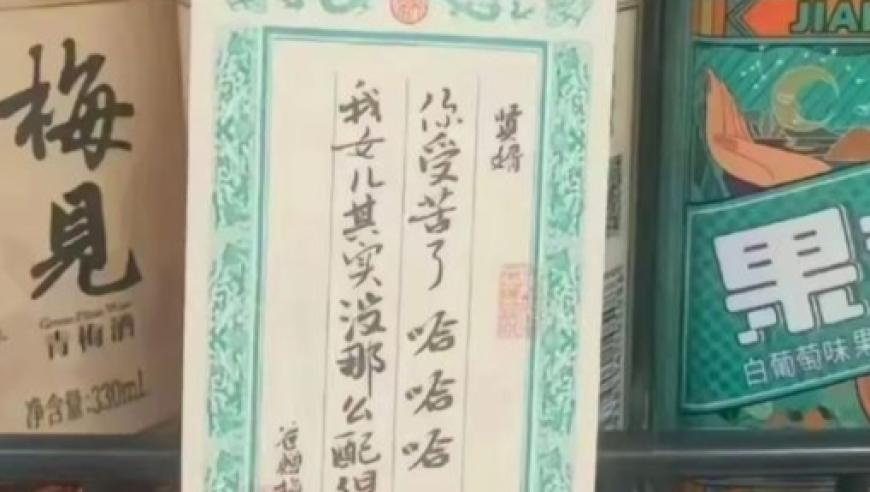 梅見
Green Plum Wine
青梅酒
净含量:330mL
贤婿
你受苦了 哈哈哈
我女儿其实没那么配得
JIAN
果
白葡萄味果